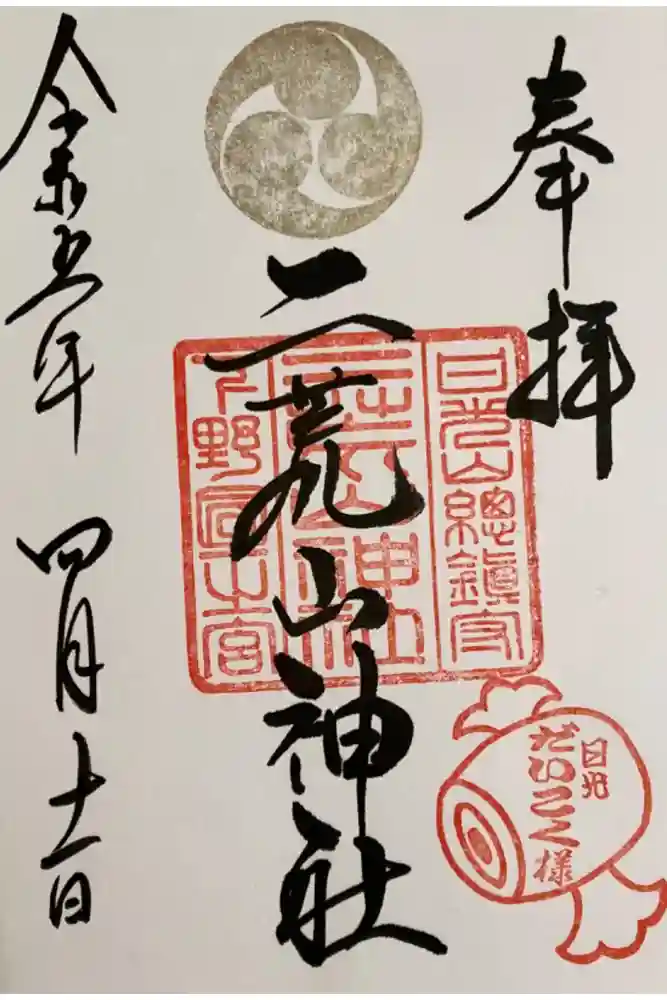 奉拝
二荒山神社
日光山總鎮守
二荒山神社
下野國一之宮
日光
だいこく様
令和五年 四月十一日